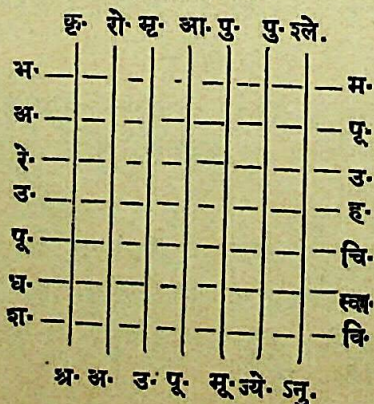 कृ॰ रो॰ मृ॰ आ॰ पु॰ पु॰ श्ले.
भ॰ म॰
अ॰ पू॰
रे॰ उ॰
उ॰ ह॰
पू॰ चि॰
ध॰ स्वा॰
श॰ वि॰
श्र॰ अ॰ उ॰ पू॰ मू॰ ज्ये॰ ऽनु॰